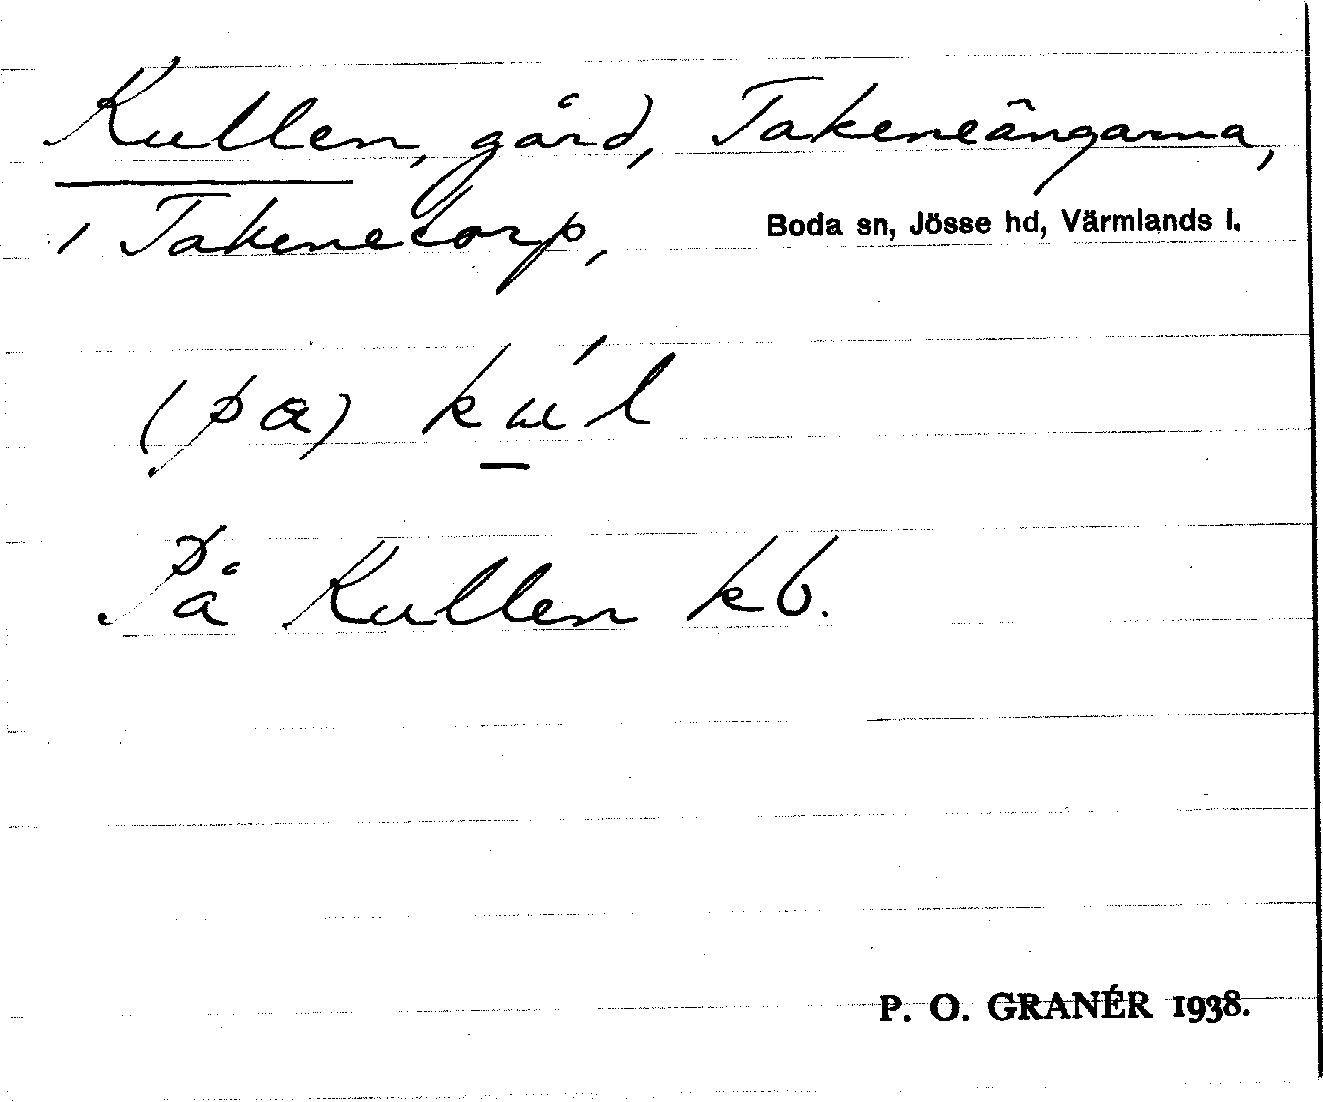 Kullen, gård, Takeneängarna,
i Takenetorp, Boda sn, Jösse hd, Värmlands l.
(pα) kuĺl
På Kullen kb.
P. O. GRANÉR 1938.